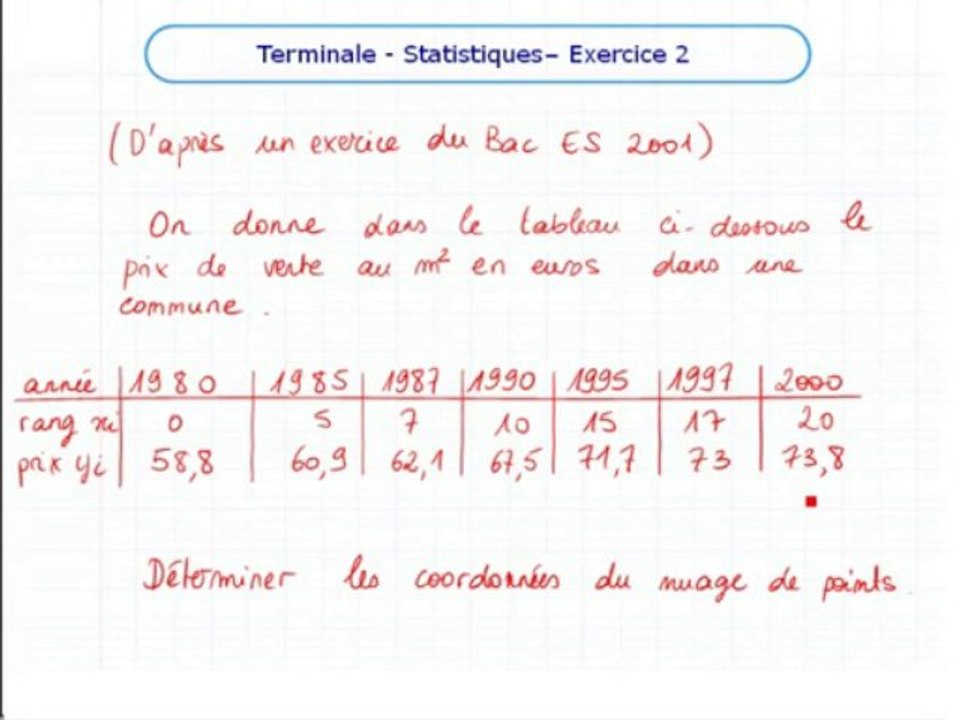 Terminale - Statistiques– Exercice 2
(D'après un exercice du Bac ES 2001)
On donne dans le tableau ci-dessous le
prix de vente au m² en euros dans une
commune.
année 1980 1985 1987 1990 1995 1997 2000
rang xi 0 5 7 10 15 17 20
prix yi 58,8 60,9 62,1 67,5 71,7 73 73,8
Déterminer les coordonnées du nuage de points.